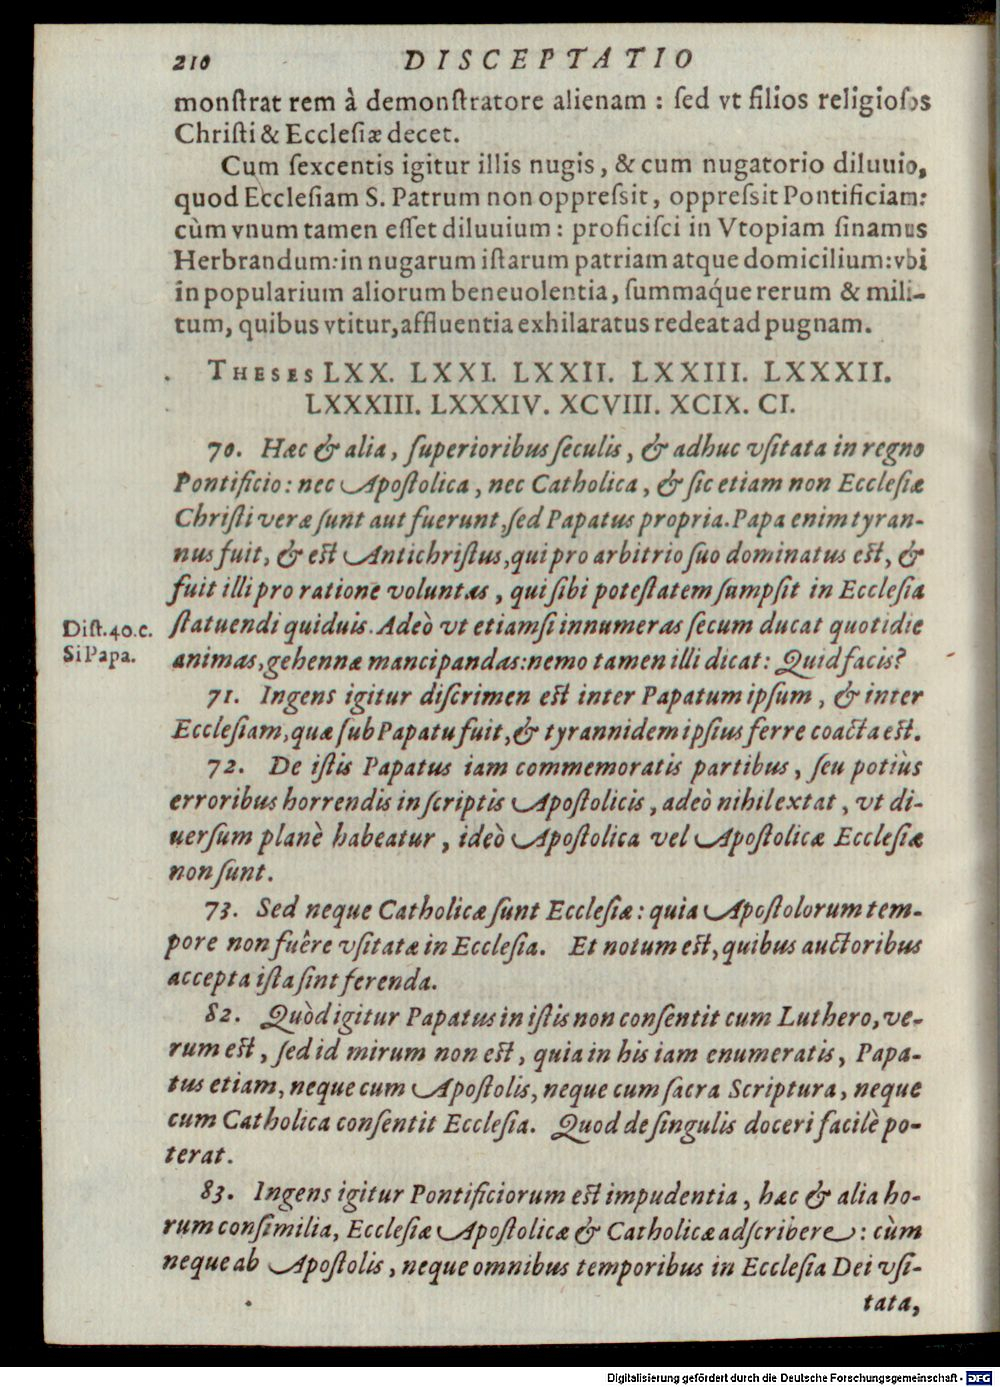 210 DISCEPTATIO
monſtrat rem à demonſtratore alienam : ſed vt filios religioſos
Chriſti & Eccleſiæ decet.
Cum ſexcentis igitur illis nugis, & cum nugatorio diluuio,
quod Eccleſiam S. Patrum non oppreſsit, oppreſsit Pontificiam:
cùm vnum tamen eſſet diluuium : proficiſci in Vtopiam ſinamus
Herbrandum: in nugarum iſtarum patriam atque domicilium: vbi
in popularium aliorum beneuolentia, ſummaq́ue rerum & mili-
tum, quibus vtitur, affluentia exhilaratus redeat ad pugnam.
THESES LXX. LXXI. LXXII. LXXIII. LXXXII.
LXXXIII. LXXXIV. XCVIII. XCIX. CI.
70. Hæc & alia, ſuperioribus ſeculis, & adhuc vſitata in regno
Pontificio: nec Apoſtolica, nec Catholica, & ſic etiam non Eccleſiæ
Chriſti veræ ſunt aut fuerunt, ſed Papatus propria. Papa enim tyran-
nus fuit, & eſt Antichriſtus, qui pro arbitrio ſuo dominatus eſt, &
fuit illi pro ratione voluntas, qui ſibi poteſtatem ſumpſit in Eccleſia
Diſt. 40. c. ſtatuendi quiduis. Adeò vt etiamſi innumeras ſecum ducat quotidie
Si Papa. animas, gehennæ mancipandas: nemo tamen illi dicat: Quid facis?
71. Ingens igitur diſcrimen eſt inter Papatum ipſum, & inter
Eccleſiam, quæ ſub Papatu fuit, & tyrannidem ipſius ferre coacta eſt.
72. De iſtis Papatus iam commemoratis partibus, ſeu potiùs
erroribus horrendis in ſcriptis Apoſtolicis, adeò nihil extat, vt di-
uerſum planè habeatur, ideò Apoſtolica vel Apoſtolicæ Eccleſiæ
non ſunt.
73. Sed neque Catholicæ ſunt Eccleſiæ: quia Apoſtolorum tem-
pore non fuêre vſitatæ in Eccleſia. Et notum eſt, quibus auctoribus
accepta iſta ſint ferenda.
82. Quòd igitur Papatus in iſtis non conſentit cum Luthero, ve-
rum eſt, ſed id mirum non eſt, quia in his iam enumeratis, Papa-
tus etiam, neque cum Apoſtolis, neque cum ſacra Scriptura, neque
cum Catholica conſentit Eccleſia. Quod de ſingulis doceri facilè po-
terat.
83. Ingens igitur Pontificiorum eſt impudentia, hæc & alia ho-
rum conſimilia, Eccleſiæ Apoſtolicæ & Catholicæ adſcribere: cùm
neque ab Apoſtolis, neque omnibus temporibus in Eccleſia Dei vſi-
tata,
Digitalisierung gefördert durch die Deutsche Forschungsgemeinschaft - DFG